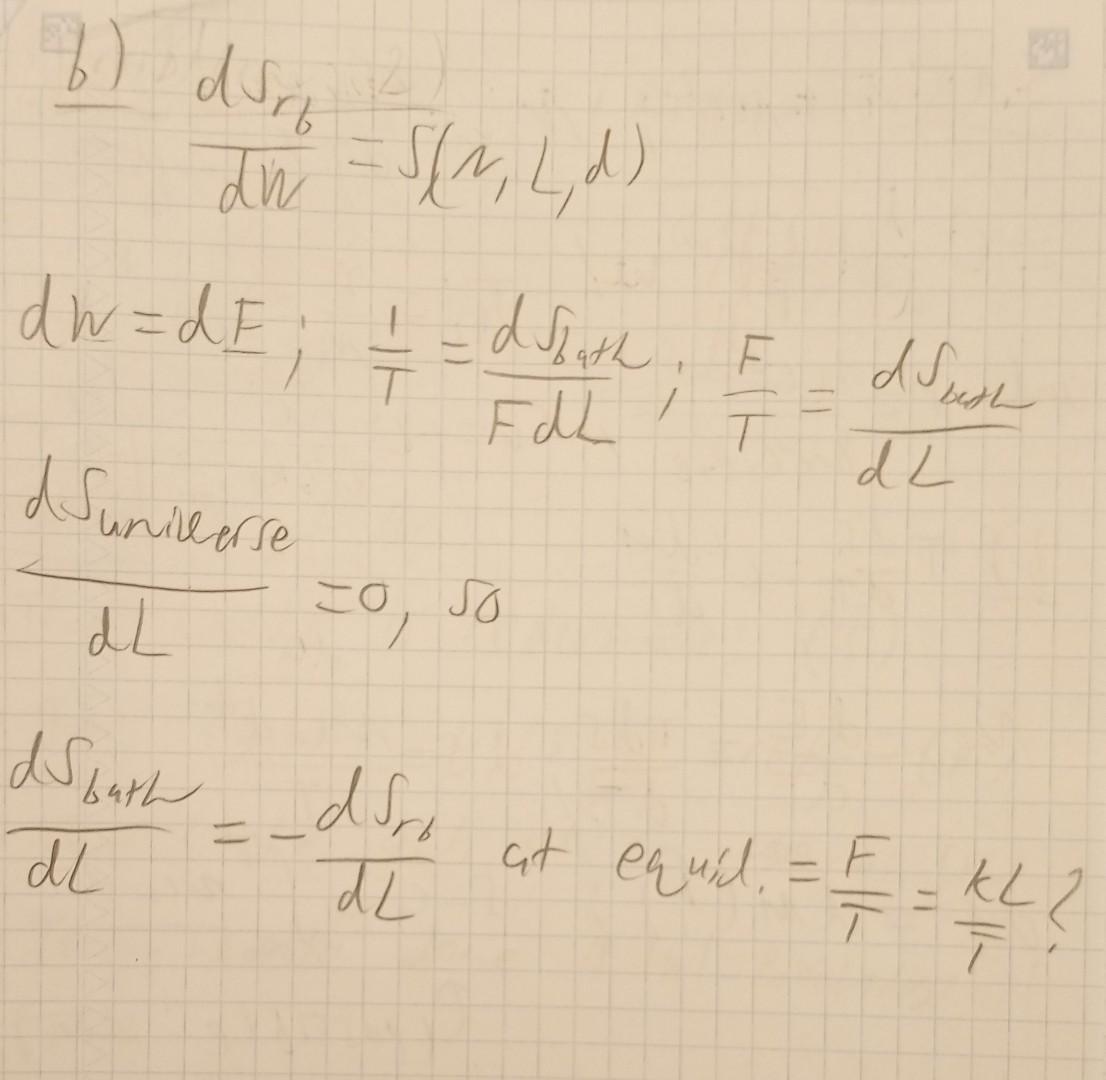 b) dS_rb/dW = S(N, L, d)
dW = dE; 1/T = dS_bath/FdL; F/T = dS_bath/dL
dS_universe/dL = 0, so
dS_bath/dL = -dS_rb/dL at equil. = F/T = kL/T?